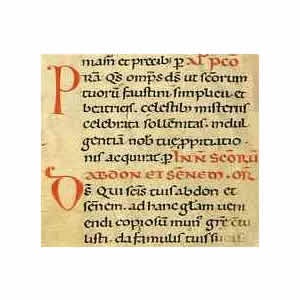 niam et precib; p̄ XP̄ PCO
PRā Qs om̄ps ds̄ ut scōrum
tuorū faustini simplicii et
beatricis. celestib; misteriis
celebrata sollemnitas. indul
gentiam nob̄ tuę ppitiatio
nis acquirat. p̄ IN N̄ SCORŪ
ABDON ET SENNEM. OR̄
DS̄ Qui scīs tuis abdon et
sennem. ad hanc glam̄ ueni
endi copiosum mun̄ grē ctu
listi. da famulis tuis